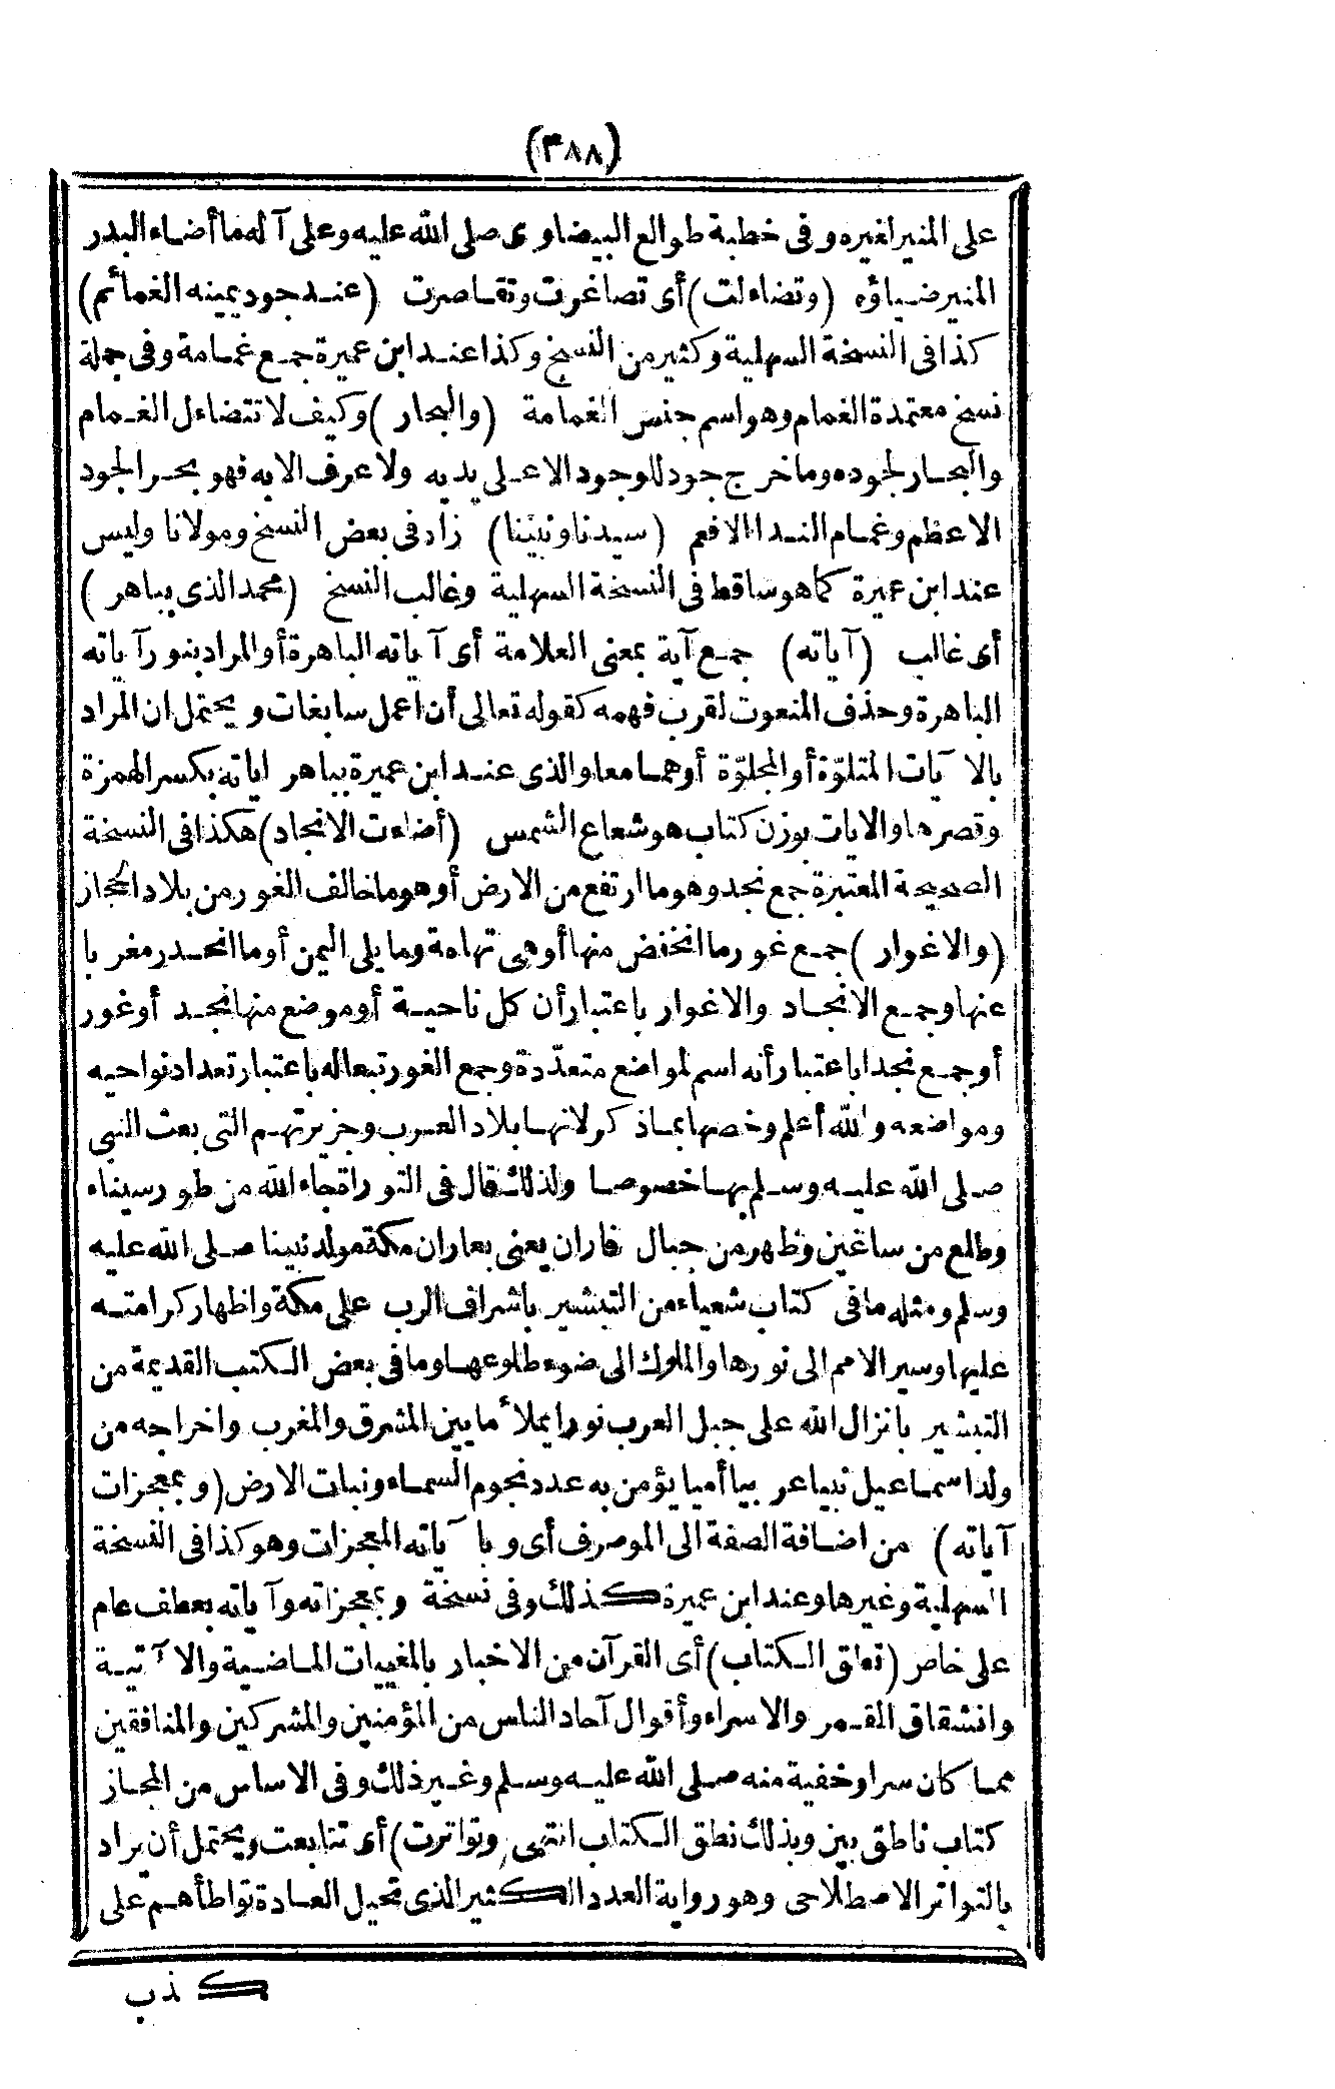 (٣٨٨)
على المنير لغيره وفى خطبة طوالع البيضاوى صلى الله عليه وعلى آله ما أضاء البدر
المنير ضياؤه (وتضاءلت) أى تصاغرت وتقاصرت (عند جود يمينه الغمائم)
كذا فى النسخة السهلية وكثير من النسخ وكذا عند ابن عميرة جمع غمامة وفى جملة
نسخ معتمدة الغمام وهو اسم جنس الغمامة (والبحار) وكيف لا تتضاءل الغمام
والبحار لجوده وما خرج جود للوجود الا على يديه ولا عرف الا به فهو بحر الجود
الاعظم وغمام الندا الافعم (سيدنا ونبينا) زاد فى بعض النسخ ومولانا وليس
عند ابن عميرة كما هو ساقط فى النسخة السهلية وغالب النسخ (محمد الذى بباهر)
أى غالب (آياته) جمع آية بمعنى العلامة أى آياته الباهرة أو المراد بنور آياته
الباهرة وحذف المنعوت لقرب فهمه كقوله تعالى أن اعمل سابغات ويحتمل ان المراد
بالا آيات المتلوّة أو المجلوّة أو هما معا والذى عند ابن عميرة بباهر اياته بكسر الهمزة
وقصرها والايات بوزن كتاب هو شعاع الشمس (أضاءت الانجاد) هكذا فى النسخة
الصحيحة المعتبرة جمع نجد وهو ما ارتفع من الارض أو هو ما خالف الغور من بلاد الحجاز
(والاغوار) جمع غور ما انخفض منها أو هى تهامة وما يلى اليمن أو ما انحدر مغربا
عنها وجمع الانجاد والاغوار باعتبار أن كل ناحية أو موضع منها نجد أو غور
أو جمع نجدا باعتبار أنه اسم لمواضع متعدّدة وجمع الغور تبعا له باعتبار تعداد نواحيه
ومواضعه والله أعلم وخصها بماذ كر لانها بلاد العرب وجزيرتهم التى بعث النبى
صلى الله عليه وسلم بها خصوصا ولذلك قال فى التوراة جاء الله من طور سيناء
وطلع من ساغين وظهر من جبال فاران يعنى بفاران مكة مولد نبينا صلى الله عليه
وسلم ومثله ما فى كتاب شعياء من التبشير باشراف الرب على مكة واظهار كرامته
عليها وسير الامم الى نورها والملوك الى ضوء طلوعها وما فى بعض الكتب القديمة من
التبشير بانزال الله على جبل العرب نورا يملأ ما بين المشرق والمغرب واخراجه من
ولد اسماعيل نبيا عربيا أميا يؤمن به عدد نجوم السماء ونبات الارض (وبمعجزات
آياته) من اضافة الصفة الى الموصوف أى وبا آياته المعجزات وهو كذا فى النسخة
السهلية وغيرها وعند ابن عميرة كذلك وفى نسخة وبمعجزاته وآياته بعطف عام
على خاص (نطق الكتاب) أى القرآن من الاخبار بالمغيبات الماضية والا آتية
وانشقاق القمر والاسراء وأقوال آحاد الناس من المؤمنين والمشركين والمنافقين
مما كان سرا وخفية منه صلى الله عليه وسلم وغير ذلك وفى الاساس من المجاز
كتاب ناطق بين وبذلك نطق الكتاب انتهى (وتواترت) أى تتابعت ويحتمل أن يراد
بالتواتر الاصطلاحى وهو رواية العدد الكثير الذى تحيل العادة تواطأهم على
كذب